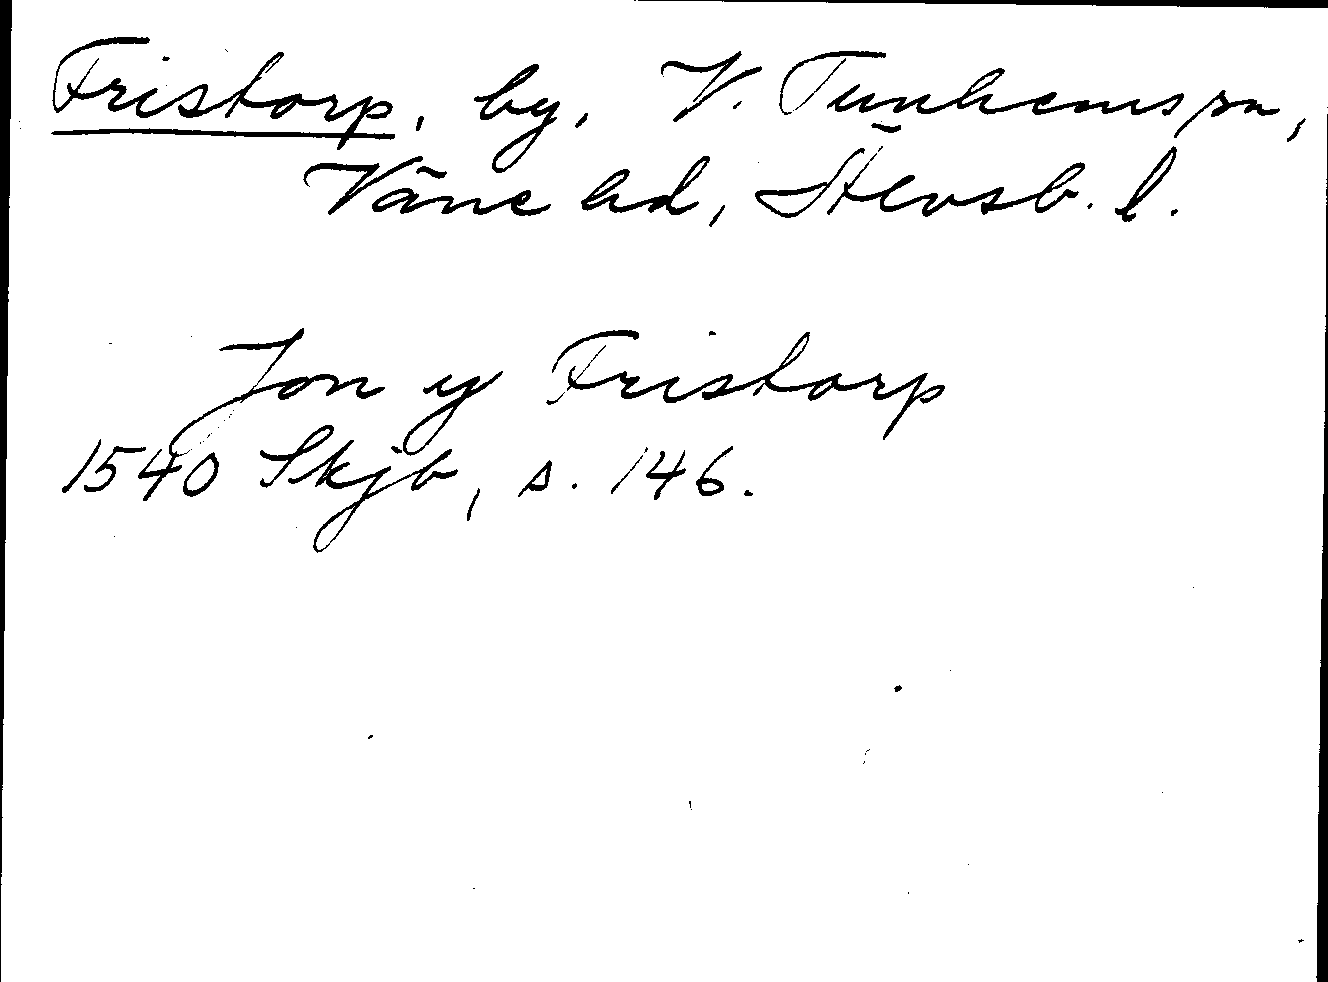 Fristorp, by, V. Tunhems sn,
Väne hd, Älvsb. l.
Jon y Fristorp
1540 Skjb, s. 146.